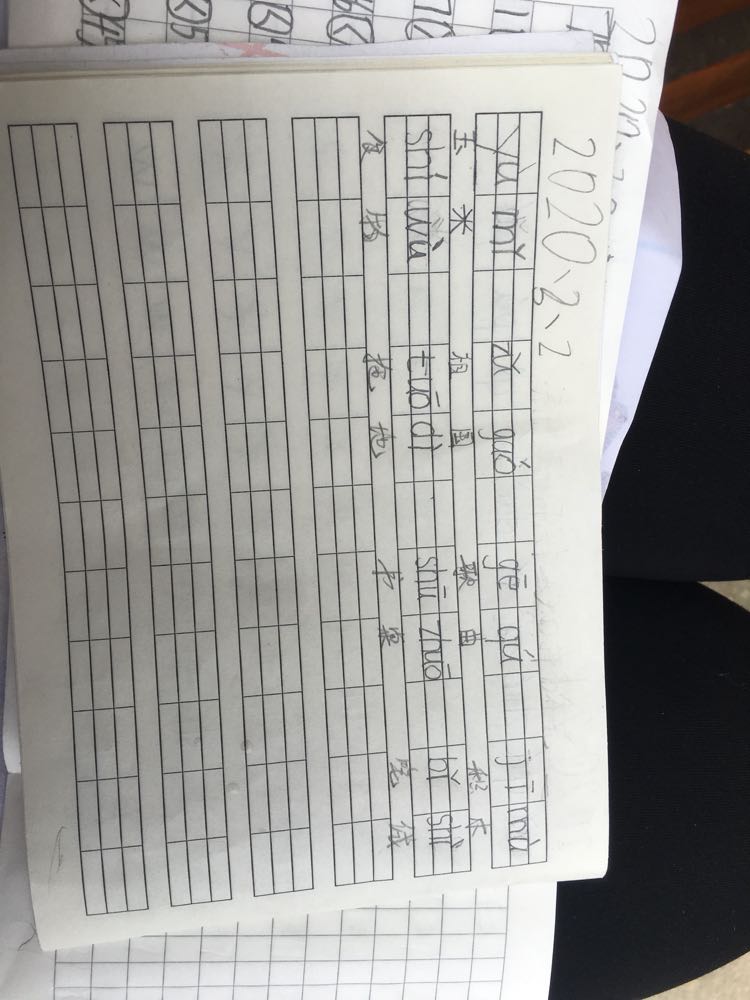 2020、3、2
yù mǐ zǔ guó gē qǔ jī mù
玉米 祖国 歌曲 积木
shí wù tuō dì shū zhuō bǐ shì
食物 拖地 书桌